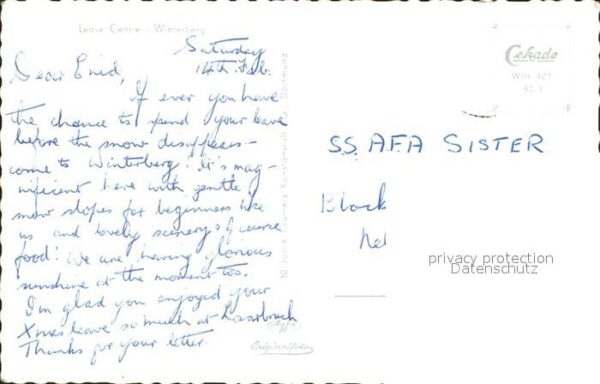 Leave Centre - Winterberg
Saturday
14th. Feb.
Dear Enid,
If ever you have
the chance to spend your leave
before the snow disappears –
come to Winterberg. It's mag-
nificent here with gentle
snow slopes for beginners like
us and lovely scenery & of course
food! We are having glorious
sunshine at the moment too.
I'm glad you enjoyed your
Xmas leave so much at
Thanks for your letter.
Cekade
Win 107
SSAFA SISTER
Block
privacy protection
Datenschutz